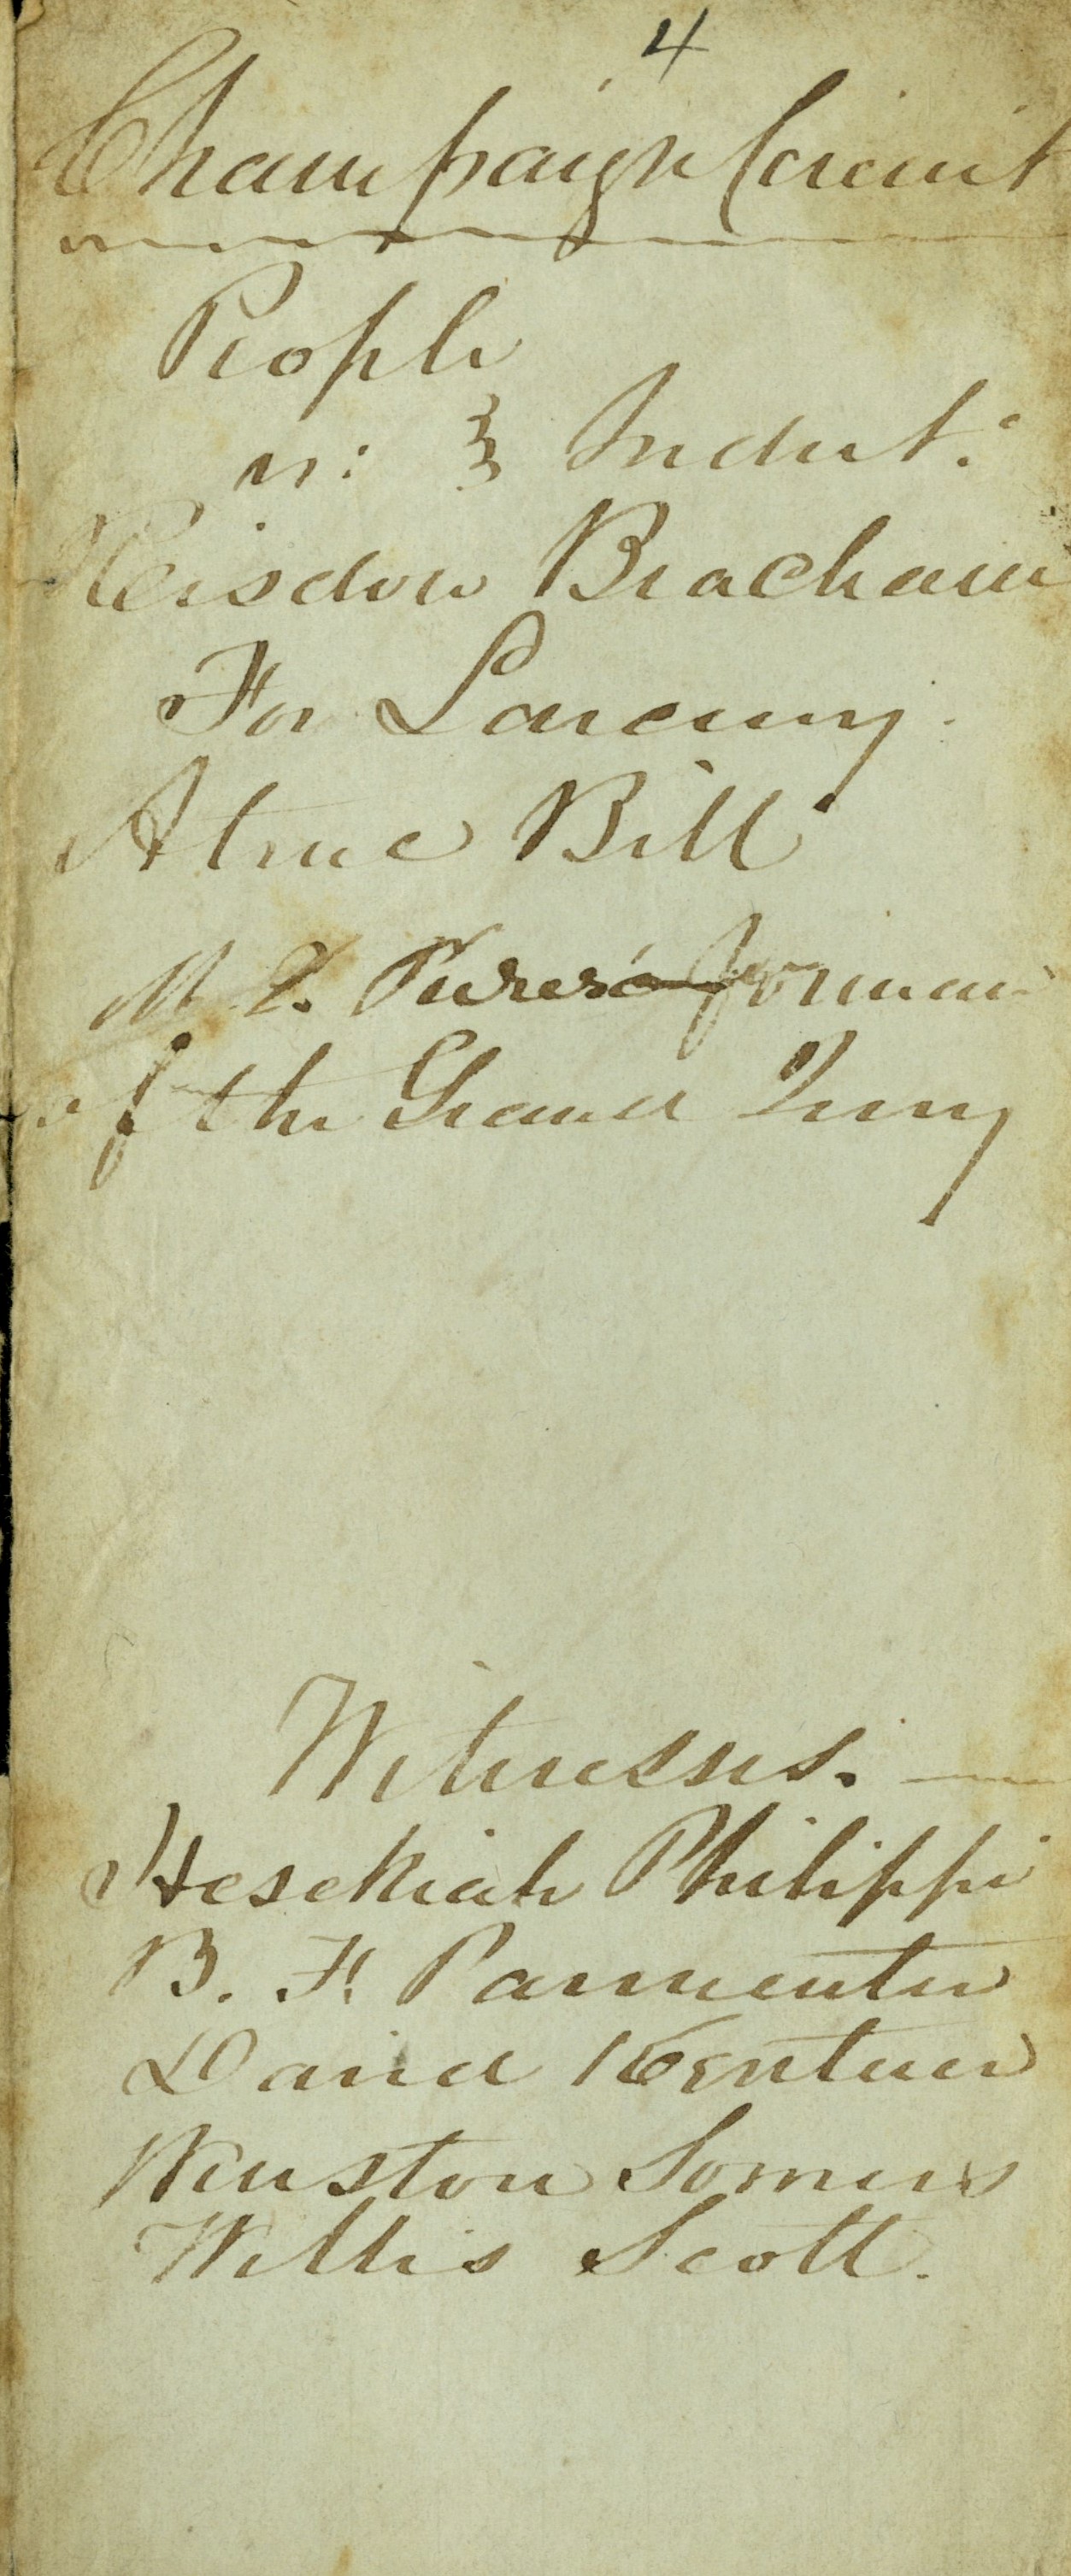 4
Champaign Circuit
People
vs: } Indict.
Beacham
For Larceny.
A true Bill
M forman
of the Grand Jury
Witnesses.
Hesekiah Philippi
B. F. Parmenter
David
Winston Somers
Willis Scott.